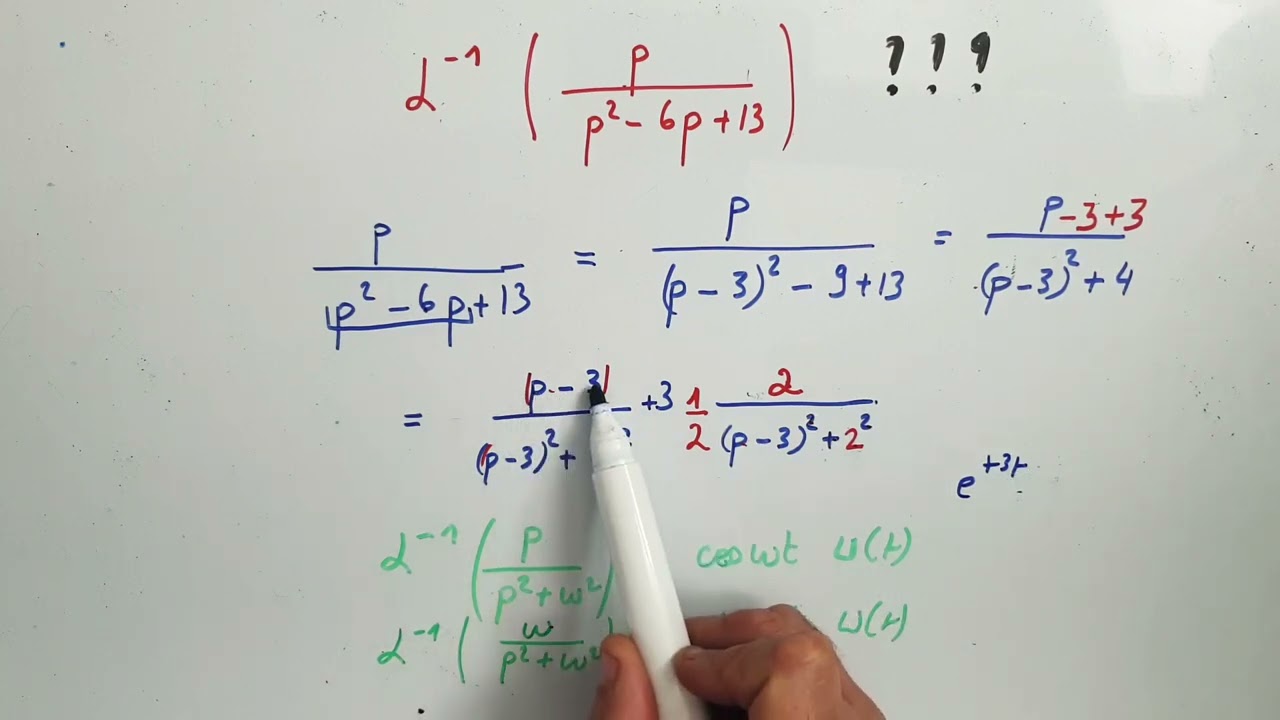 ℒ⁻¹ ( p / (p² - 6p + 13) ) ???
p / (p² - 6p + 13) = p / ((p - 3)² - 9 + 13) = (p - 3 + 3) / ((p - 3)² + 4)
= (p - 3) / ((p - 3)² + + 3 1/2 2 / ((p - 3)² + 2²)
e^(+3t)
ℒ⁻¹ ( p / (p² + ω²) ) cos ωt u(t)
ℒ⁻¹ ( ω / (p² + ω²) ) u(t)